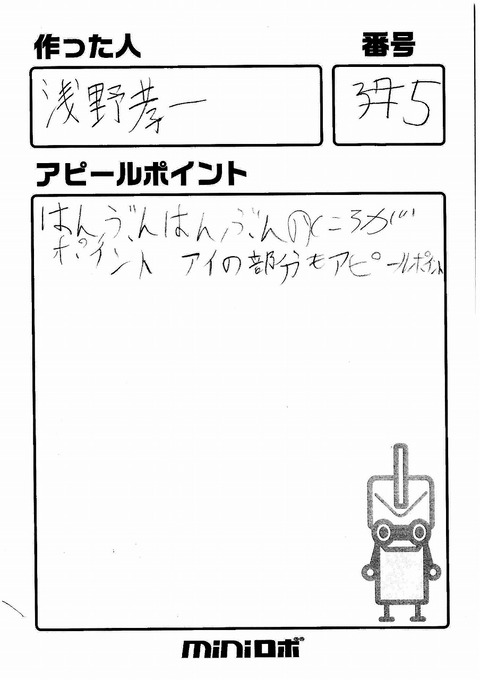 作った人
番号
浅野孝一
研5
アピールポイント
はんぶんはんぶんのところが
ポイント アイの部分もアピールポイント
miniロボ